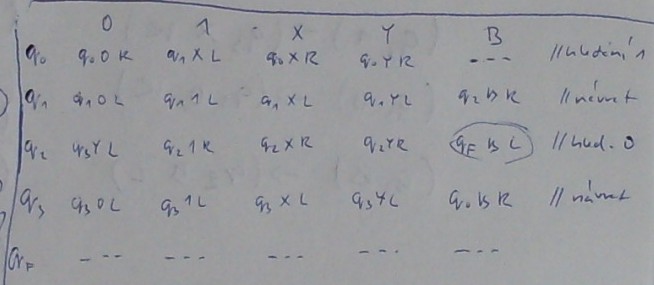 0 1 X Y B
q₀ q₀ 0 R q₁ X L q₀ X R q₀ Y R --- // hledání 1
q₁ q₁ 0 L q₁ 1 L q₁ X L q₁ Y L q₂ B R // návrat
q₂ q₃ Y L q₂ 1 R q₂ X R q₂ Y R q_F B L // hled. 0
q₃ q₃ 0 L q₃ 1 L q₃ X L q₃ Y L q₀ B R // návrat
q_F --- --- --- --- ---